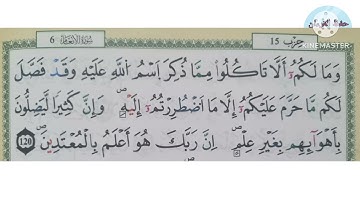 حزب 15
سورة الأنعام 6
KINEMASTER
وَمَا لَكُمُۥٓ أَلَّا تَاكُلُوا۟ مِمَّا ذُكِرَ اَسْمُ اُللَّهِ عَلَيْهِ وَقَدْ فَصَّلَ
لَكُم مَّا حَرَّمَ عَلَيْكُمُۥٓ إِلَّا مَا اَضْطُرِرْتُمُۥٓ إِلَيْهِ وَإِنَّ كَثِيرًا لَّيَضِلُّونَ
بِأَهْوَآئِهِم بِغَيْرِ عِلْمٍ اِنَّ رَبَّكَ هُوَ أَعْلَمُ بِالْمُعْتَدِينَ 120